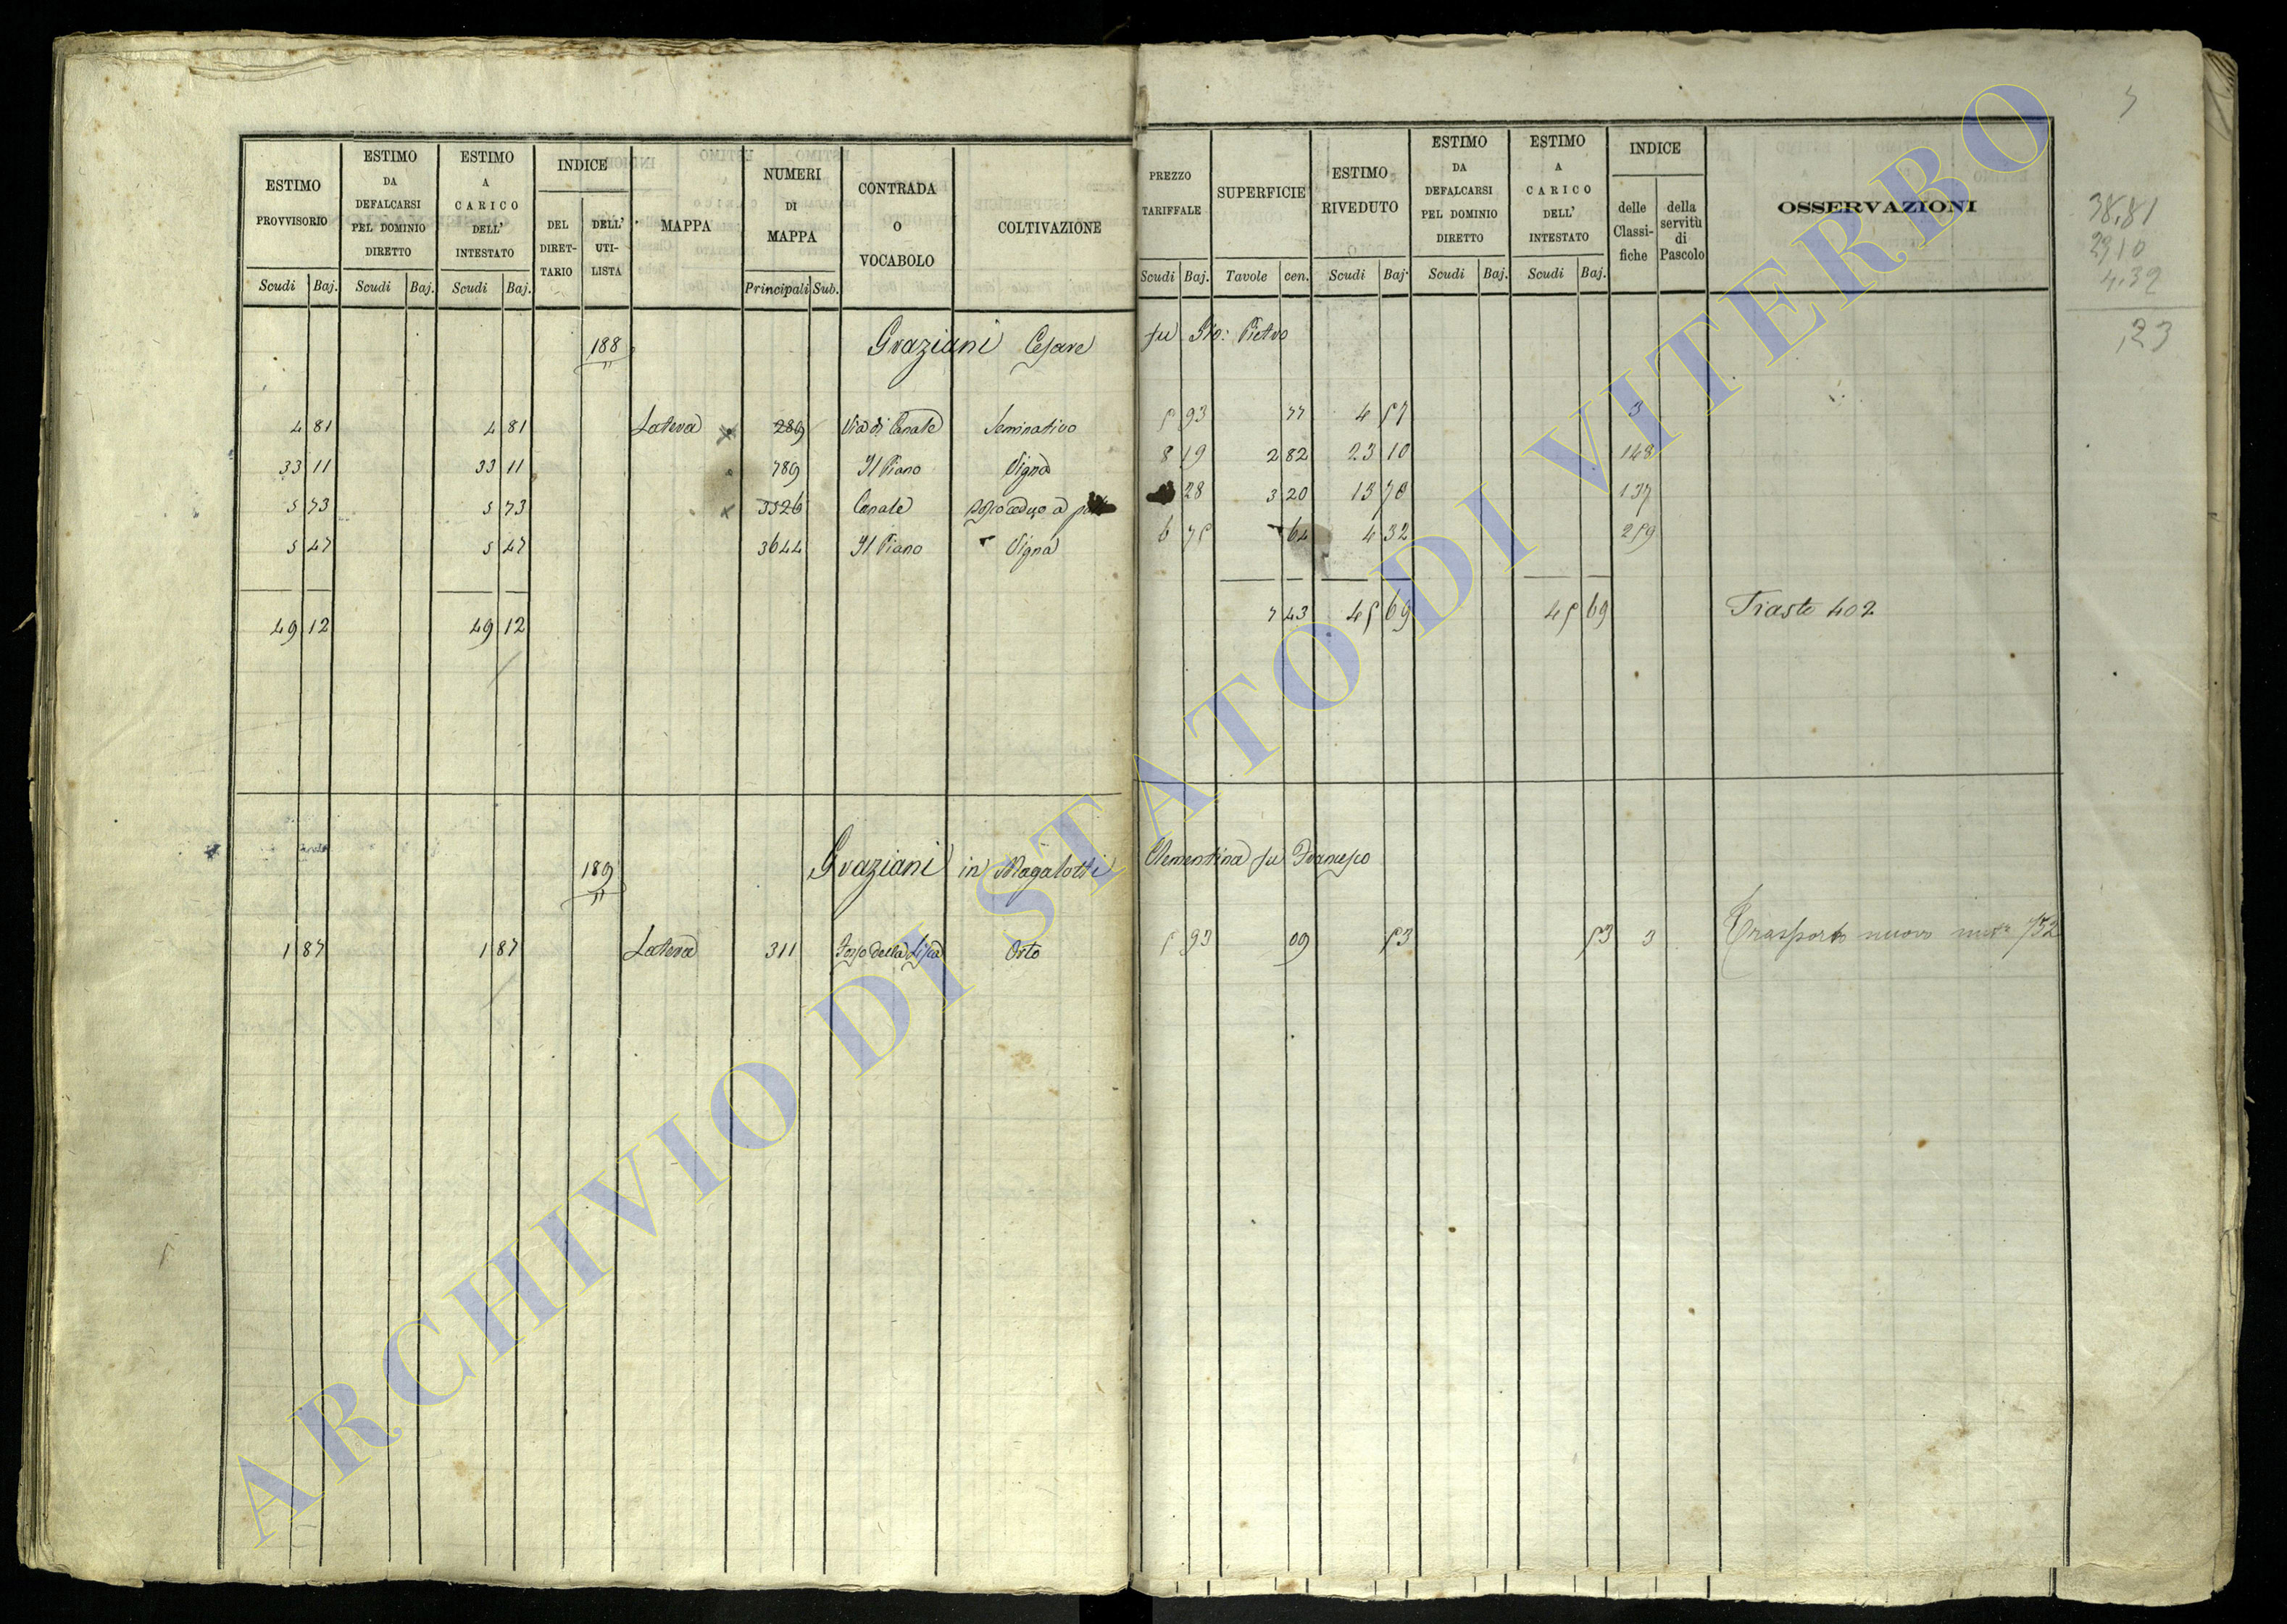 ESTIMO PROVVISORIO Scudi Baj.
ESTIMO DA DEFALCARSI PEL DOMINIO DIRETTO Scudi Baj.
ESTIMO A CARICO DELL' INTESTATO Scudi Baj.
INDICE DEL DIRET-TARIO DELL' UTI-LISTA
MAPPA
NUMERI DI MAPPA Principali Sub.
CONTRADA O VOCABOLO
COLTIVAZIONE
PREZZO TARIFFALE Scudi Baj.
SUPERFICIE Tavole cen.
ESTIMO RIVEDUTO Scudi Baj.
ESTIMO DA DEFALCARSI PEL DOMINIO DIRETTO Scudi Baj.
ESTIMO A CARICO DELL' INTESTATO Scudi Baj.
INDICE delle Classi-fiche della servitù di Pascolo
OSSERVAZIONI
188 Graziani Cesare fu Gio: Pietro
4 81 4 81 Latera x 289 Via di Canale Seminativo 5 93 77 4 57 3
33 11 33 11 789 Il Piano Vigna 8 19 2 82 23 10 148
5 73 5 73 x 3326 Canale Bosco ceduo a 28 3 20 13 70 137
5 47 5 47 3644 Il Piano Vigna 6 75 64 4 32 259
49 12 49 12 7 43 45 69 45 69 Tiasto 402
189 Graziani in Magalotti Clementina fu Francesco
1 87 1 87 Latera 311 Fosso della Lisca Orto 5 93 09 53 53 3 Trasporto nuovo 732
38,81
23,10
4,32
,23
ARCHIVIO DI STATO DI VITERBO